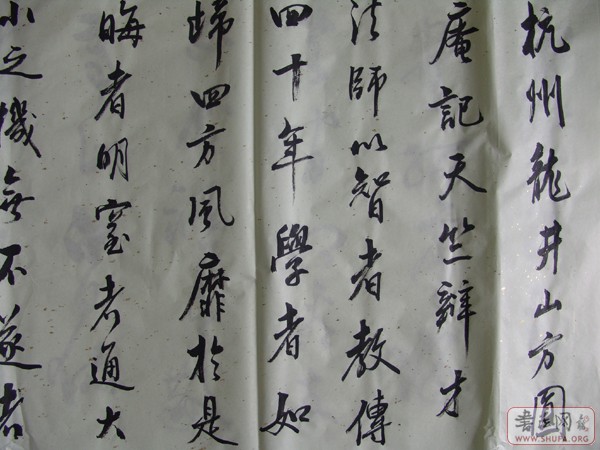 杭州龍井山方圓
庵記天竺辯才
法師以智者教傳
四十年學者如
歸四方風靡於是
晦者明窒者通大
小之機無不遂者
書法网
WWW.SHUFA.ORG